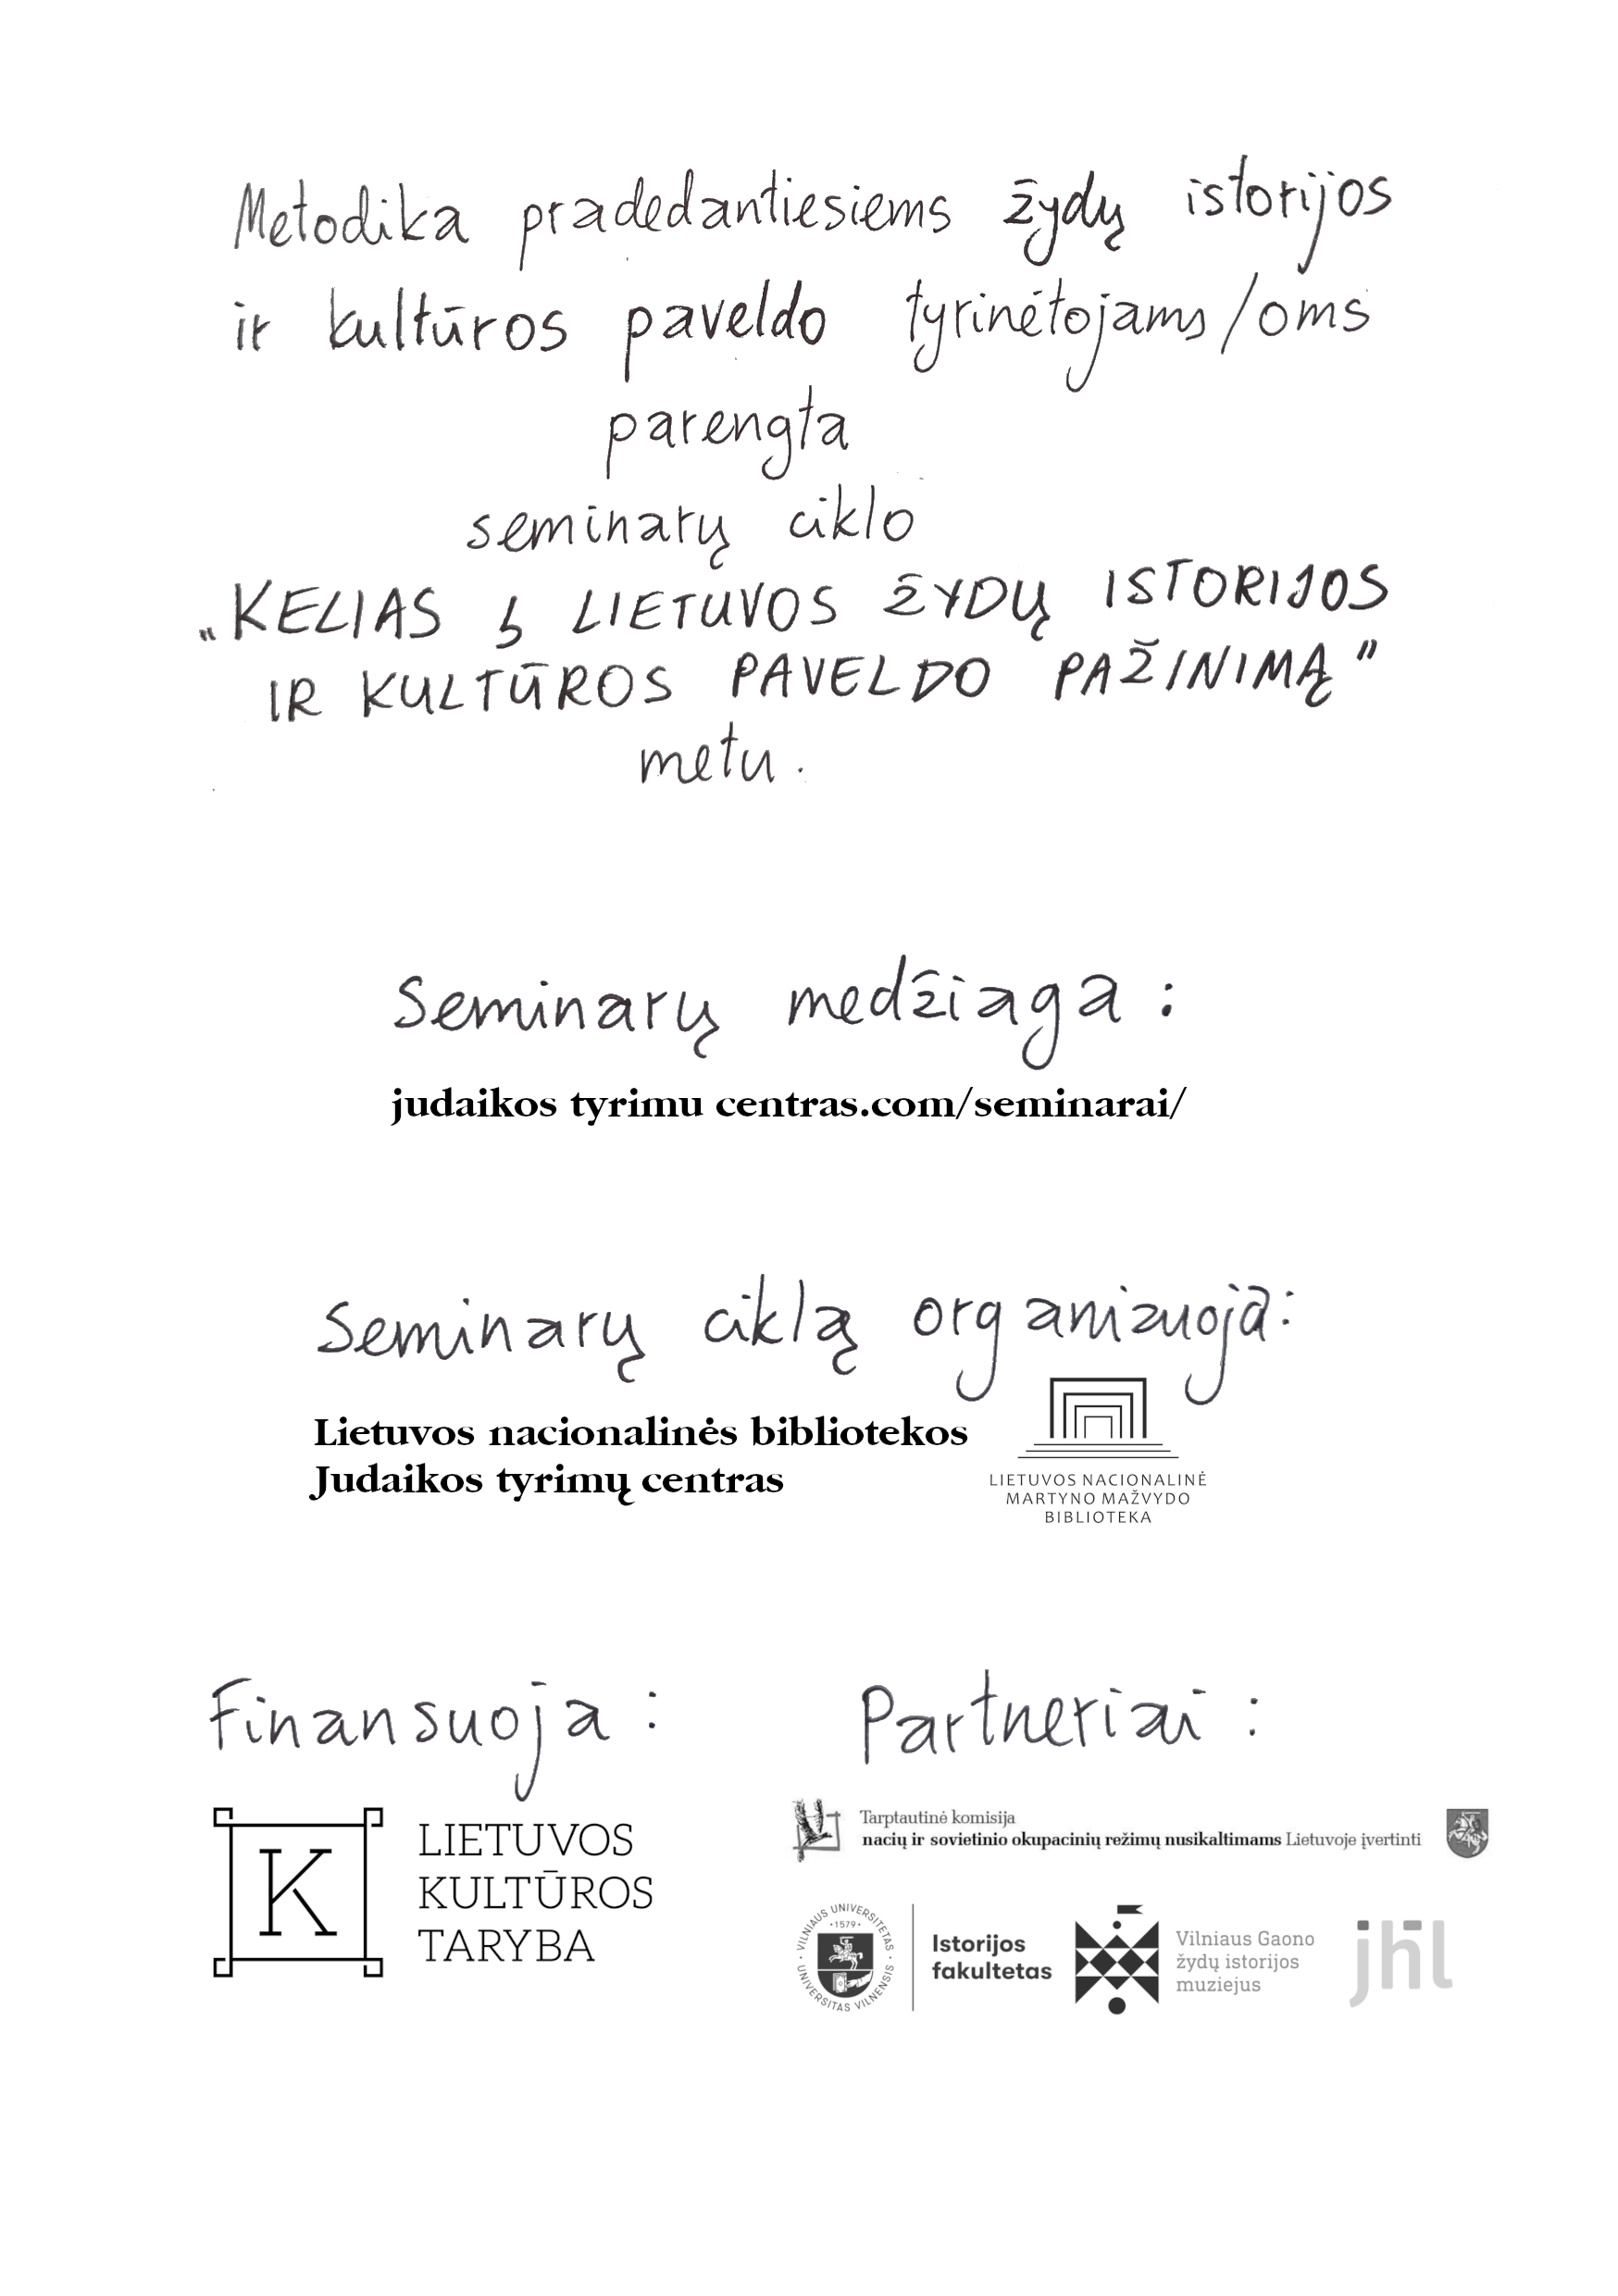 Metodika pradedantiesiems žydų istorijos
ir kultūros paveldo tyrinėtojams/oms
parengta
seminarų ciklo
„KELIAS Į LIETUVOS ŽYDŲ ISTORIJOS
IR KULTŪROS PAVELDO PAŽINIMĄ"
metu.
Seminarų medžiaga:
judaikos tyrimu centras.com/seminarai/
Seminarų ciklą organizuoja:
Lietuvos nacionalinės bibliotekos
Judaikos tyrimų centras
LIETUVOS NACIONALINĖ
MARTYNO MAŽVYDO
BIBLIOTEKA
Finansuoja:
K
LIETUVOS
KULTŪROS
TARYBA
Partneriai:
Tarptautinė komisija
nacių ir sovietinio okupacinių režimų nusikaltimams Lietuvoje įvertinti
VILNIAUS UNIVERSITETAS · UNIVERSITAS VILNENSIS ·
·1579·
Istorijos
fakultetas
Vilniaus Gaono
žydų istorijos
muziejus
jhl